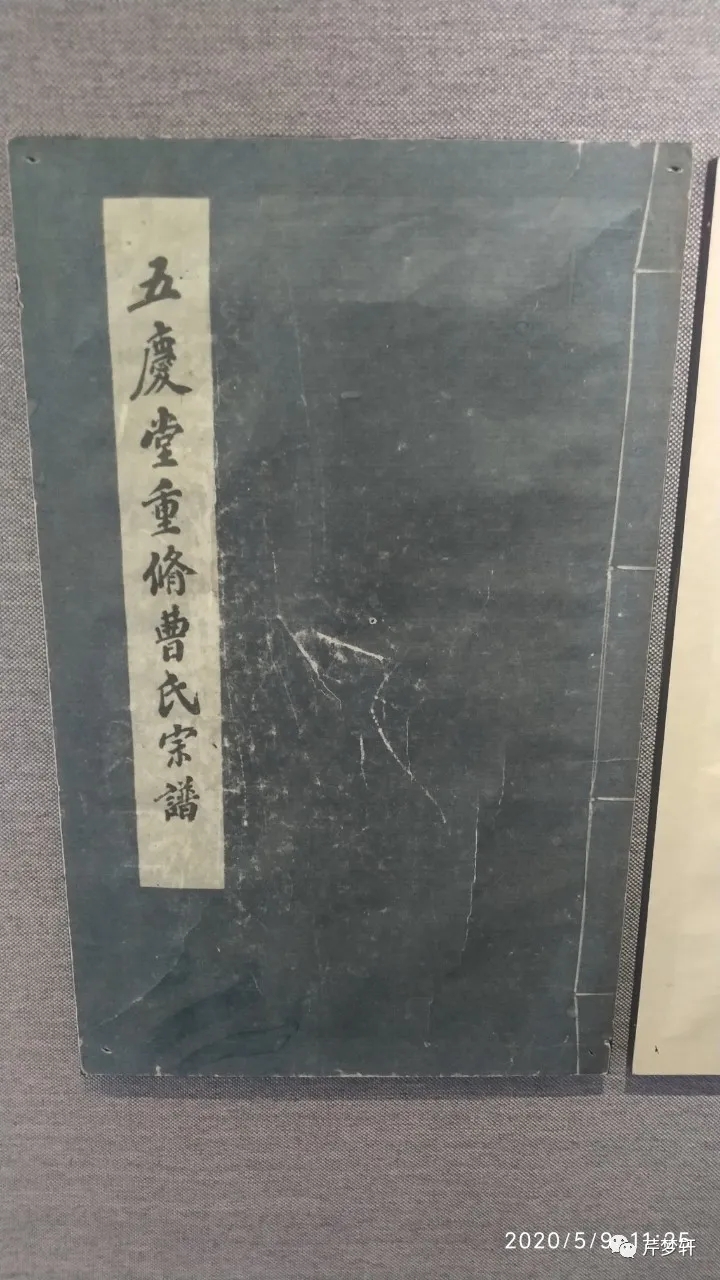 五慶堂重脩曹氏宗譜
2020/5/9 11:25
芹梦轩